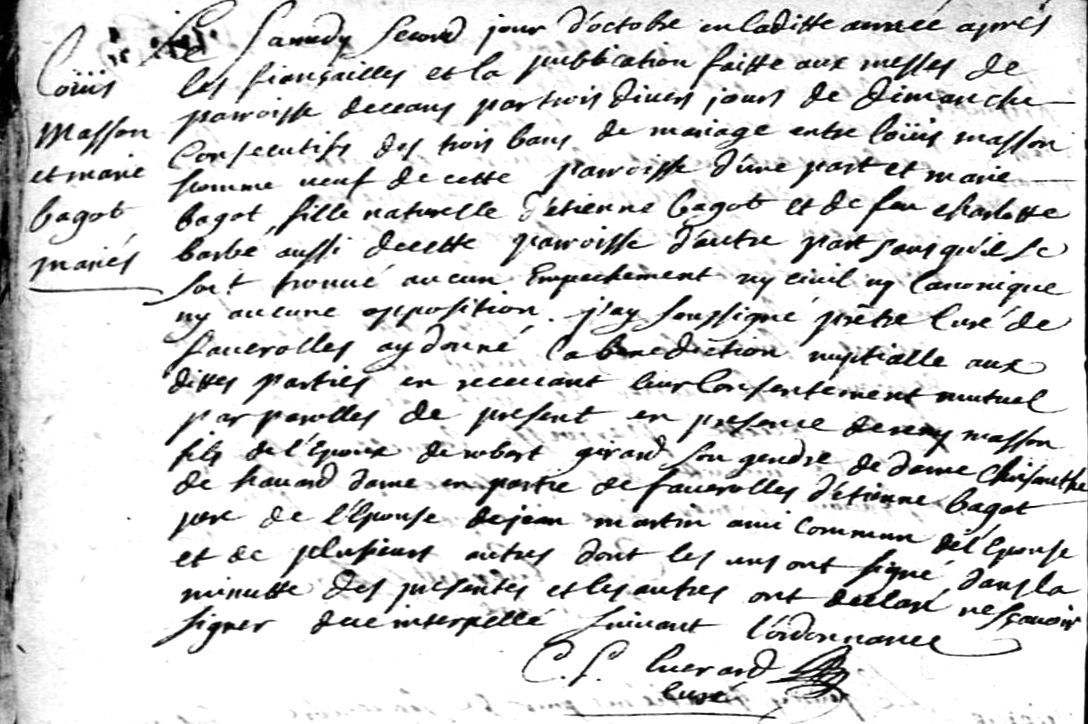 Loüis
Masson
et marie
bagot
mariés
Le Samedy Second jour d'octobre en laditte année apres
les fiançailles et la publication faitte aux messes de
parroisse deceans par trois divers jours de dimanche
Consecutifs des trois bans de mariage entre loüis masson
homme veuf de cette parroisse d'une part et marie
bagot fille naturelle d'etienne bagot et de feu charlotte
barbé aussi decette parroisse d'autre part sans qu'il se
soit trouvé aucun Empechement ny civil ny Canonique
ny aucune opposition. j'ay soussigné prêtre Curé de
faverolles ay donné la benediction nuptialle aux
dittes parties en recevant leur Consentement mutuel
par parolles de present en presence de remy masson
fils de l'Epoux de robert girard son gendre de dame Chrisanthe
de hauard dame en partie de faverolles d'etienne bagot
pere de l'Epouse de jean martin ami commun de l'Epouse
et de plusieurs autres dont les uns ont signé dans la
minutte des presentes et les autres ont declaré ne sçavoir
signer de ce interpellé suivant l'ordonnance
C. f. Cuerard
Curé